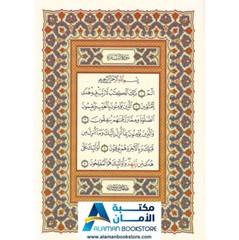 سورة البقرة
بسم الله الرحمن الرحيم
الم ۝ ذلك الكتب لا ريب فيه هدى
للمتقين ۝ الذين يؤمنون بالغيب ويقيمون
الصلوة ومما رزقنهم ينفقون ۝
والذين يؤمنون بما أنزل إليك وما أنزل من
قبلك وبالآخرة هم يوقنون ۝ أولئك على
هدى من ربهم وأولئك هم المفلحون ۝
مكتبة
الأمان
ALAMAN BOOKSTORE
www.alamanbookstore.com